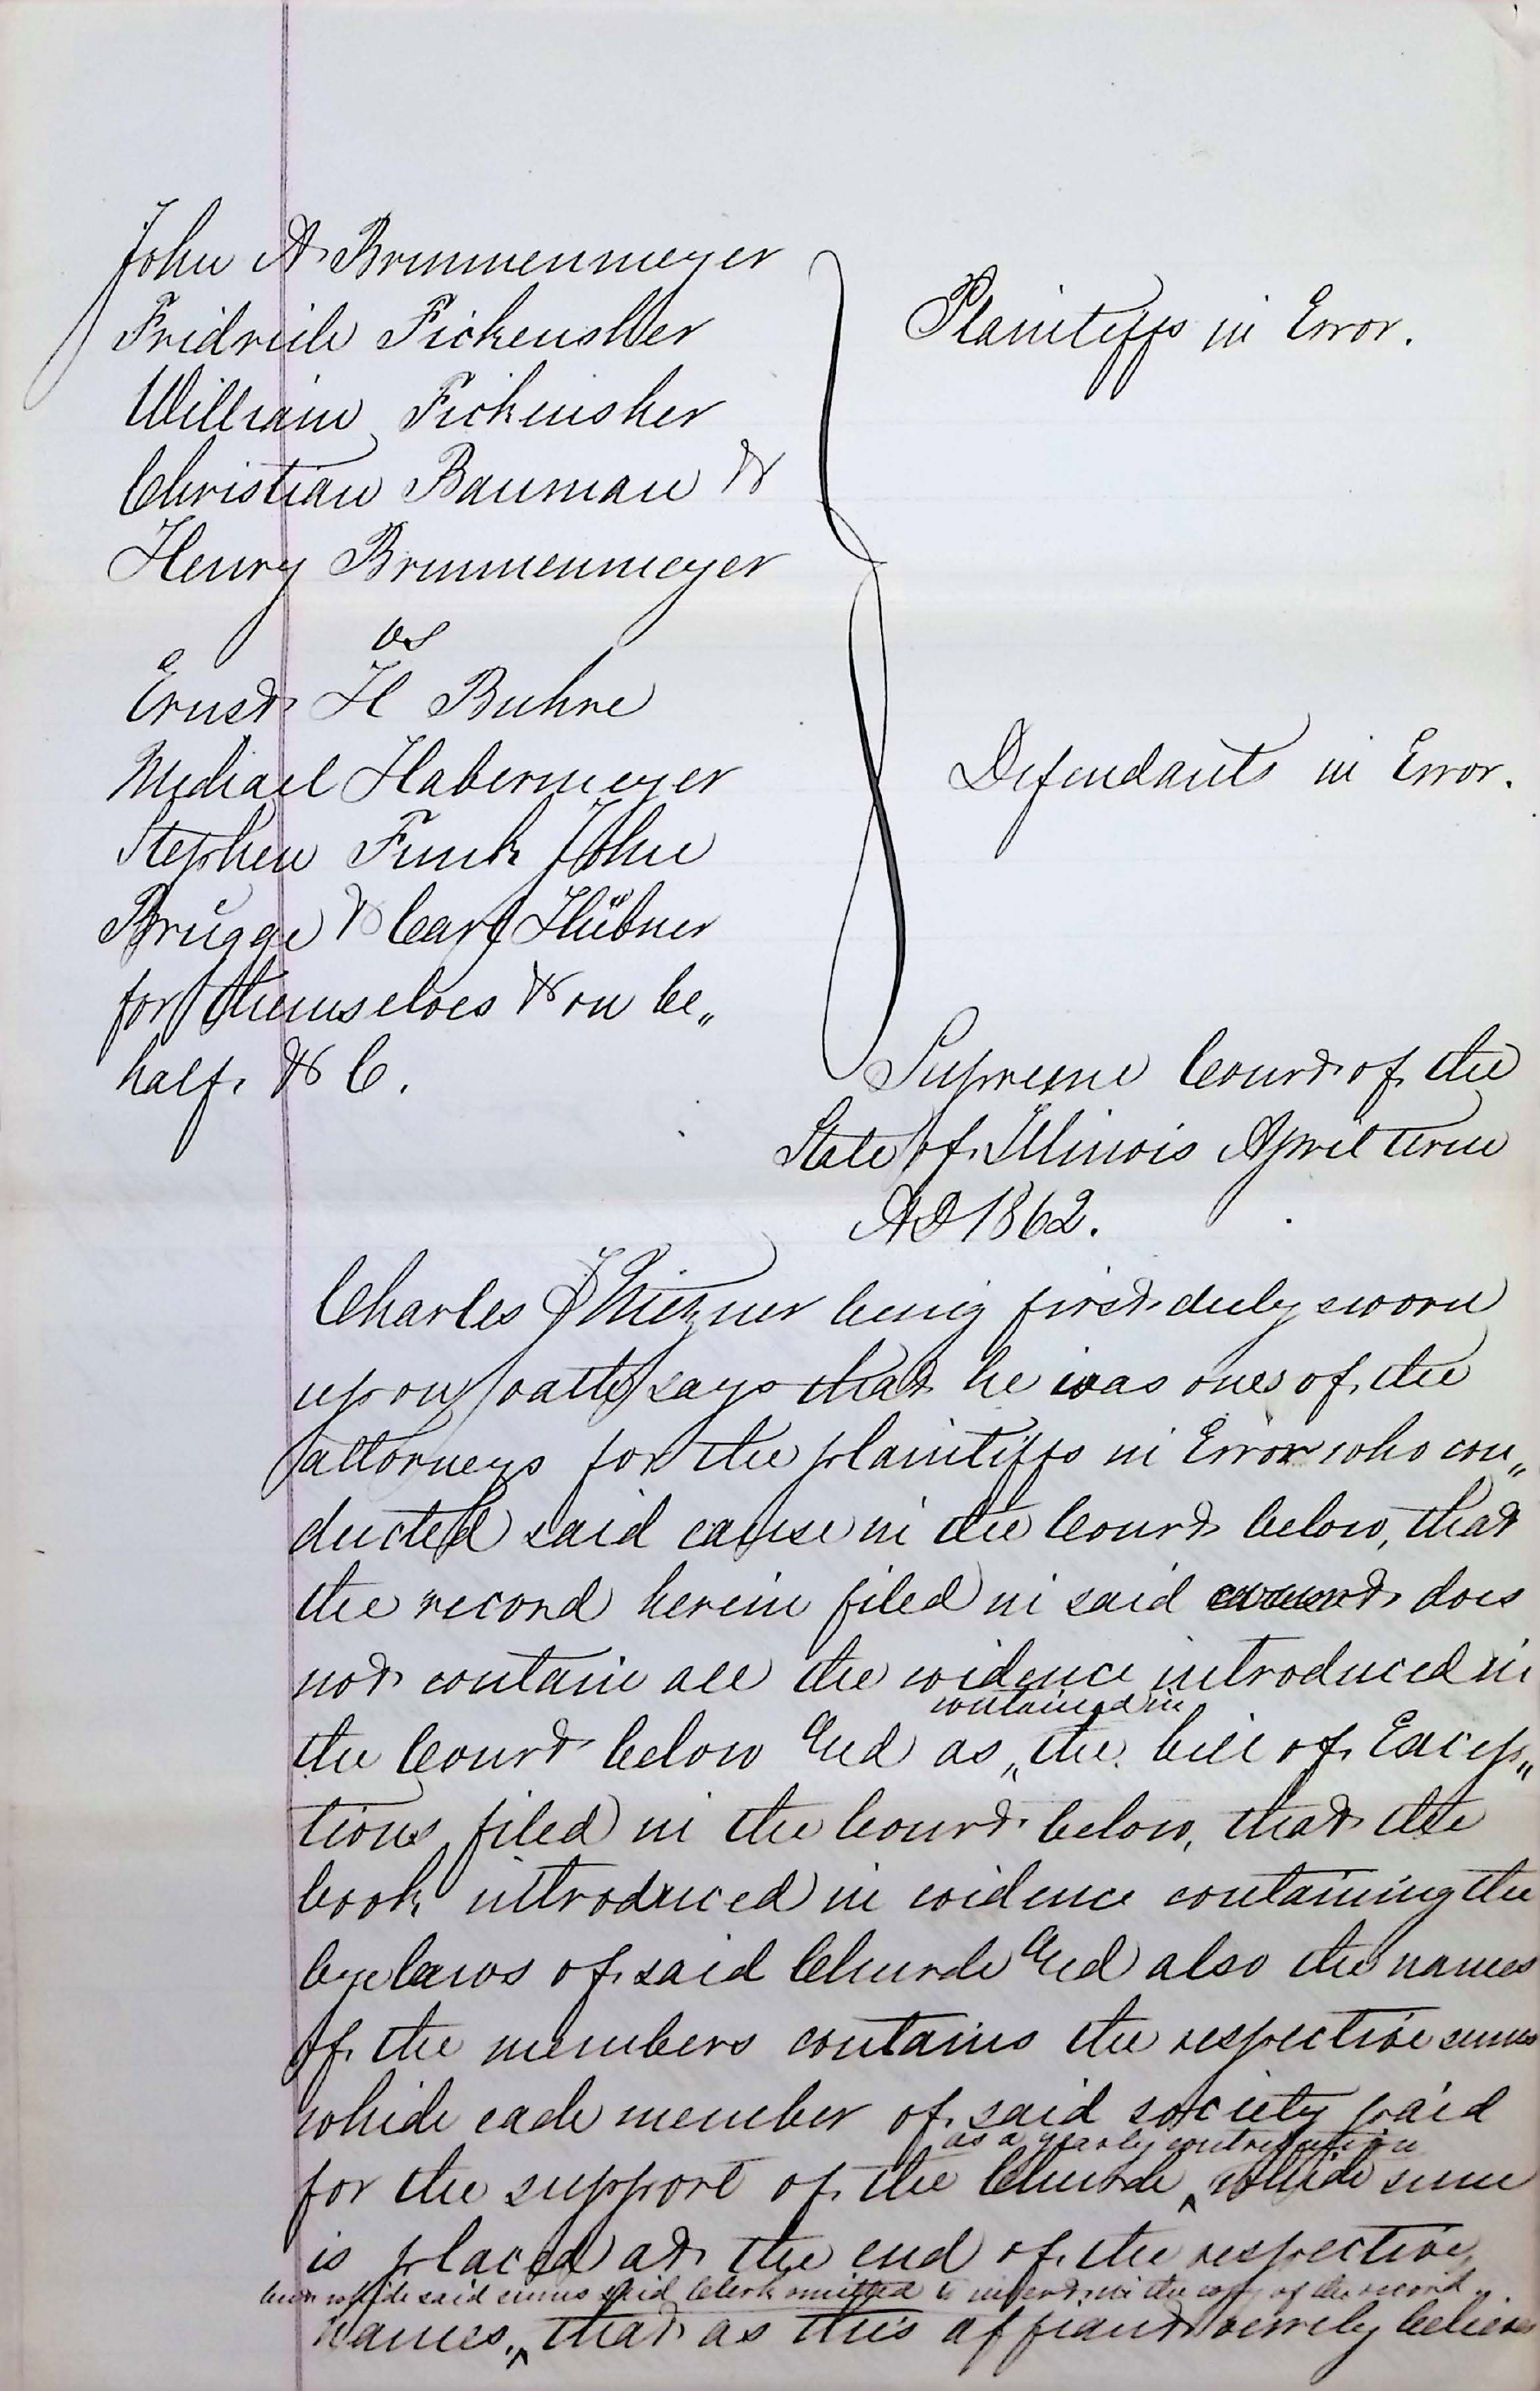 John A Brunnenmeyer
Fridrich Fickensher
William Fickensher
Christian Bauman &
Henry Brunnenmeyer
Plaintiffs in Error.
vs
Ernst H Buhre
Michael Habermeyer
Stephen Funk John
Brügge & Carl Hübner
for themselves & on be„
half. & C.
Defendants in Error.
Supreme Court of the
State of Illinois April term
AD 1862.
Charles being first duly sworn
upon oath says that he was one of the
attorneys for the plaintiffs in Error who con„
ducted said cause in the Court below, that
the record herein filed in said does
not contain all the evidence introduced in
contained in
the Court below and as „ the bill of Excep„
tions filed in the Court below, that the
book introduced in evidence containing the
bye laws of said Church and also the names
of the members contains the respective sums
which each member of said society paid
as a yearly contribution
for the support of the Church ‸ which sum
is placed at the end of the respective
but which said sums said Clerk omitted to insert in the copy of the record
names, ‸ that as this affiant verily believes